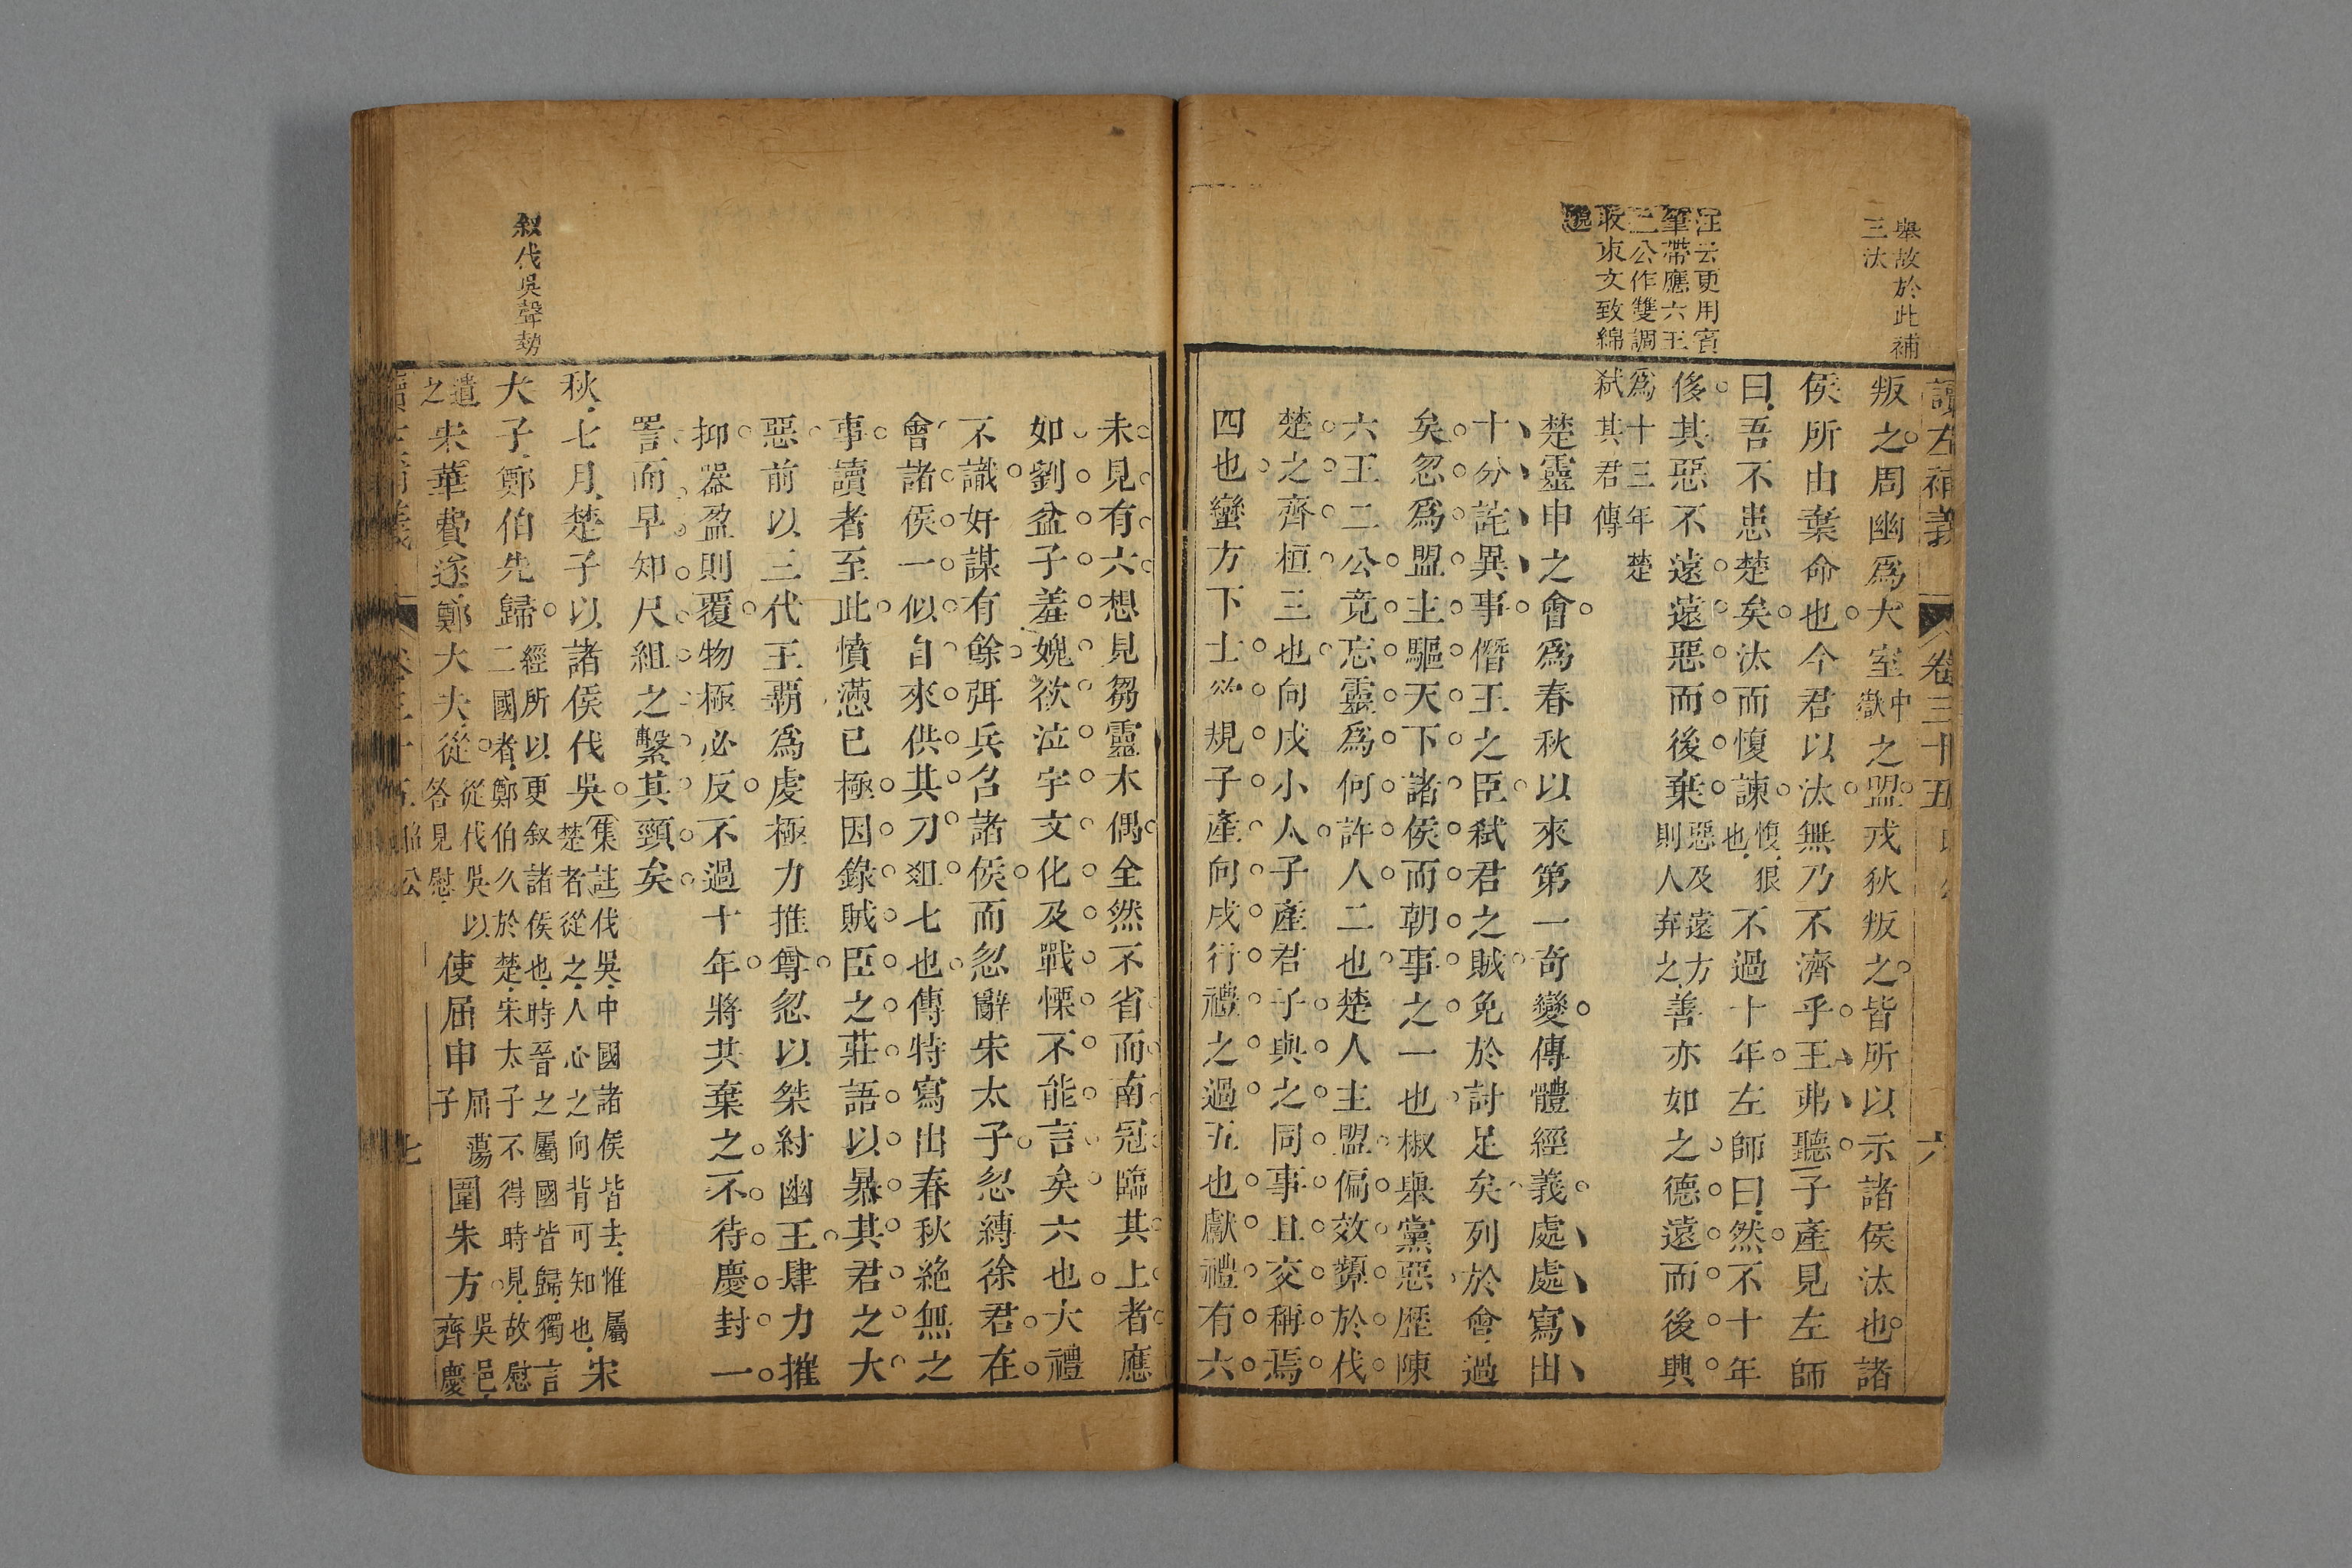 舉故於此補
三汰
汪云更用賓
筆帶應六王
二公作雙調
收束文致綿
邈
讀左補義
卷三十五
六
叛之周幽爲大室中嶽之盟戎狄叛之皆所以示諸侯汰也諸
侯所由棄命也今君以汰無乃不濟乎王弗聽子產見左師
曰吾不患楚矣汰而愎諫愎狠也不過十年左師曰然不十年
侈其惡不遠遠惡而後棄惡及遠方則人弃之善亦如之德遠而後興
爲十三年楚弑其君傳
楚靈申之會爲春秋以來第一奇變傳體經義處處寫出
十分詫異事僭王之臣弑君之賊免於討足矣列於會過
矣忽爲盟主驅天下諸侯而朝事之一也椒舉黨惡歷陳
六王二公竟忘靈爲何許人二也楚人主盟偏效顰於伐
楚之齊桓三也向戌小人子產君子與之同事且交稱焉
四也蠻方下士欲規子產向戌行禮之過五也獻禮有六
未見有六想見芻靈木偶全然不省而南冠臨其上者應
如劉盆子羞媿欲泣宇文化及戰慄不能言矣六也大禮
不識奸謀有餘弭兵召諸侯而忽辭宋太子忽縛徐君在
會諸侯一似自來供其刀俎七也傳特寫出春秋絶無之
事讀者至此憤懣已極因錄賊臣之莊語以暴其君之大
惡前以三代王覇爲虔極力推尊忽以桀紂幽王肆力摧
抑器盈則覆物極必反不過十年將共棄之不待慶封一
詈而早知尺組之繫其頸矣
叙伐吳聲勢
秋七月楚子以諸侯伐吳集註伐吳中國諸侯皆去惟屬楚者從之人心之向背可知也宋
大子鄭伯先歸經所以更叙諸侯也時晉之屬國皆歸獨言二國者鄭伯久於楚宋太子不得時見故慰
遣之宋華費遂鄭大夫從從伐吳以答見慰使屈申屈蕩子圍朱方吳邑齊慶
七